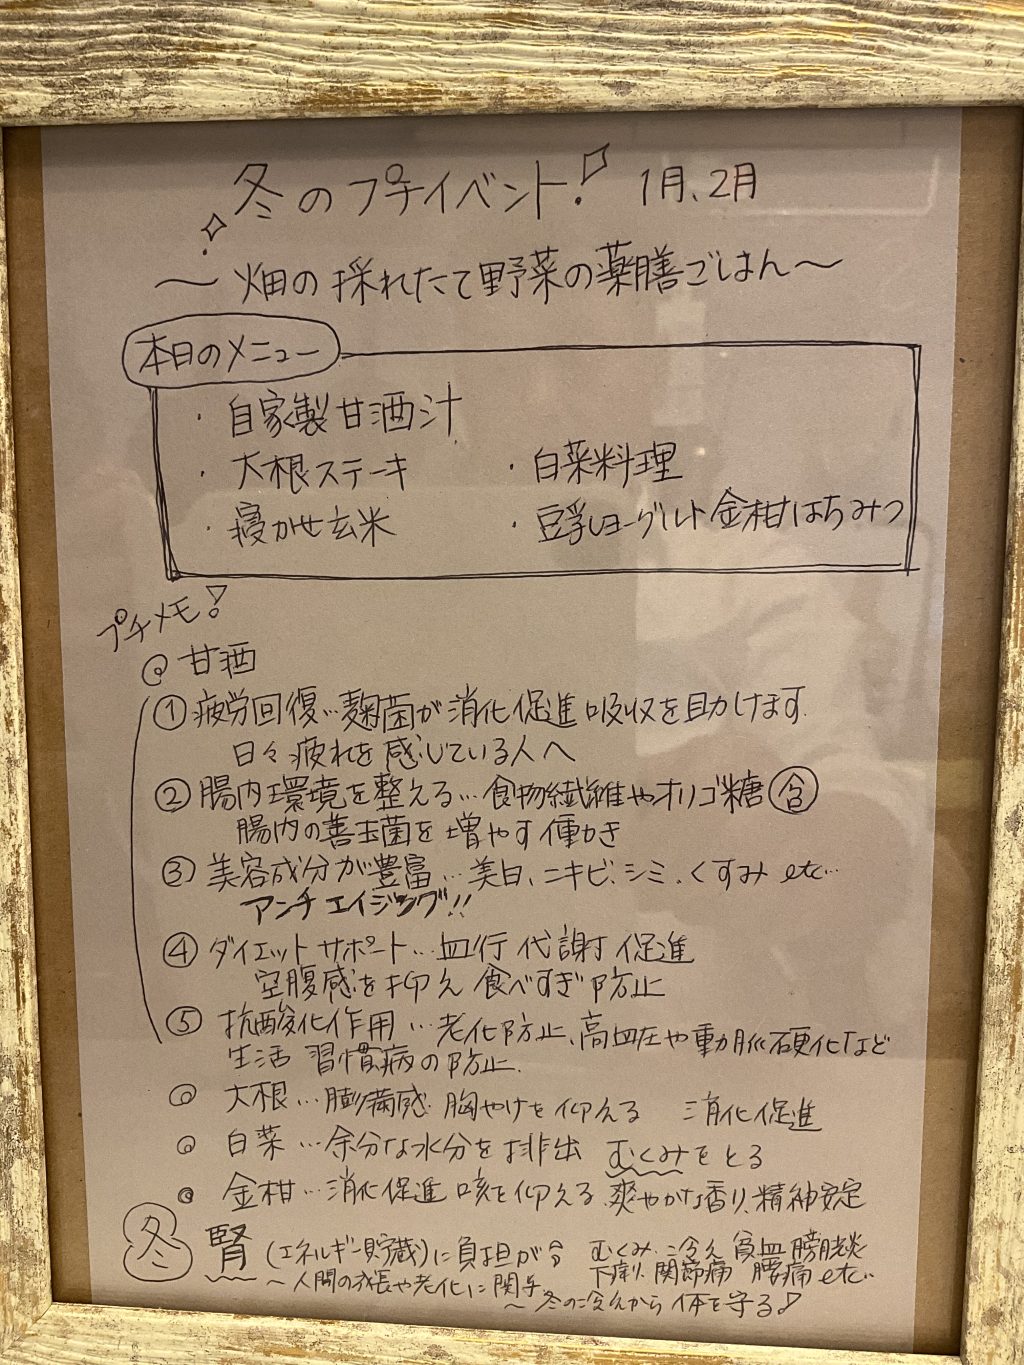 冬のプチイベント! 1月、2月
〜畑の採れたて野菜の薬膳ごはん〜
本日のメニュー
・自家製甘酒汁
・大根ステーキ ・白菜料理
・寝かせ玄米 ・豆乳ヨーグルト金柑はちみつ
プチメモ!
◎甘酒
①疲労回復…麹菌が消化促進吸収を助けます。
日々疲れを感じている人へ
②腸内環境を整える…食物繊維やオリゴ糖㊒
腸内の善玉菌を増やす働き
③美容成分が豊富…美白、ニキビ、シミ、くすみetc…
アンチエイジング!!
④ダイエットサポート…血行代謝促進
空腹感を抑え食べすぎ防止
⑤抗酸化作用…老化防止、高血圧や動脈硬化など
生活習慣病の防止.
◎大根…膨満感 胸やけを抑える 消化促進
◎白菜…余分な水分を排出 むくみをとる
◎金柑…消化促進 咳を抑える、爽やかな香り、精神安定
冬 腎(エネルギー貯蔵)に負担が むくみ 冷え 貧血 膀胱炎
〜人間の成長や老化に関与 下痢 関節痛 腰痛 etc…
〜冬の冷えから体を守る♪